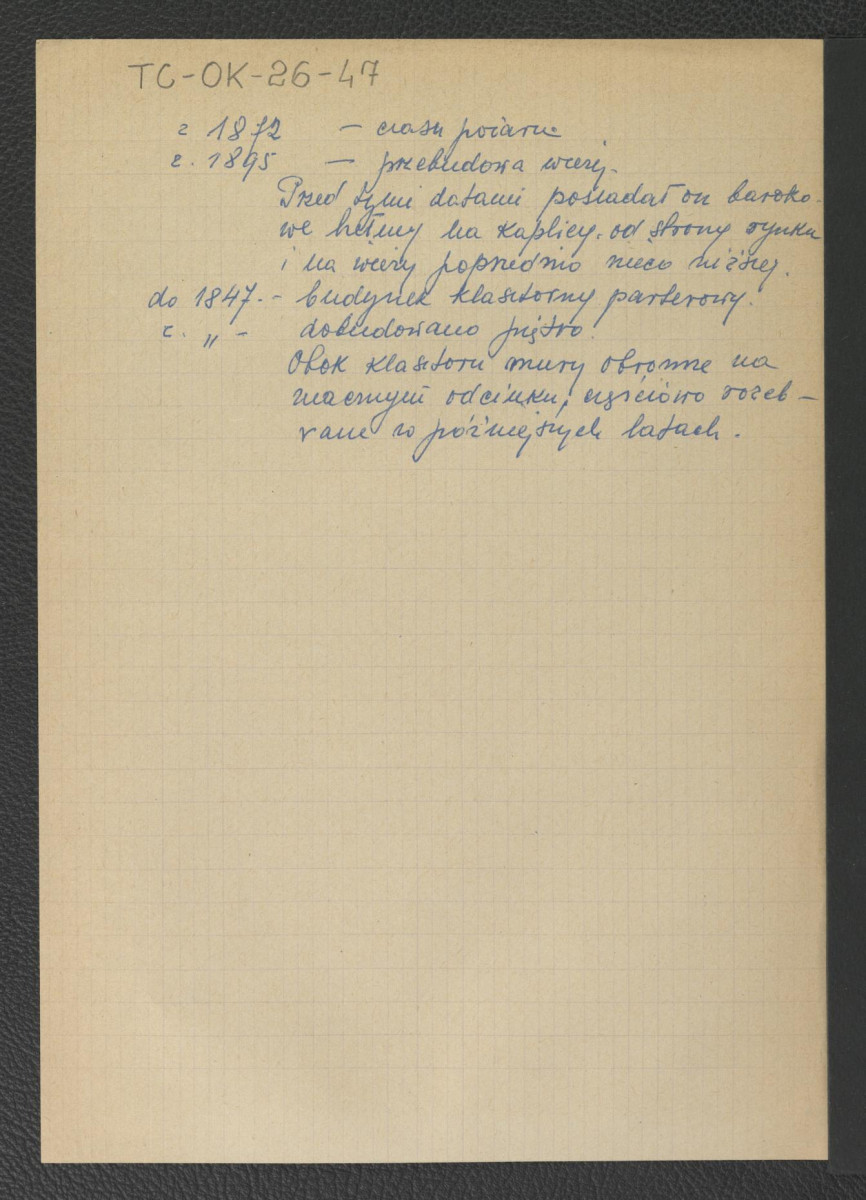 TC-OK-26-47
z 1872 — czasu pożaru
z. 1895 — przebudowa wieży.
Przed tymi datami posiadał on baroko-
we hełmy na kaplicy od strony rynku
i na wieży poprzednio nieco niższej.
do 1847. - budynek klasztorny parterowy.
z. „ - dobudowano piętro.
Obok klasztoru mury obronne na
znacznym odcinku, częściowo rozeb-
rane w późniejszych latach.